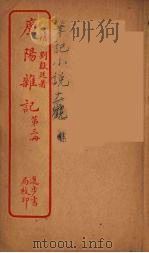 劉獻廷著
廣陽雜記
第三册
進步書
局校印
筆記小說大觀